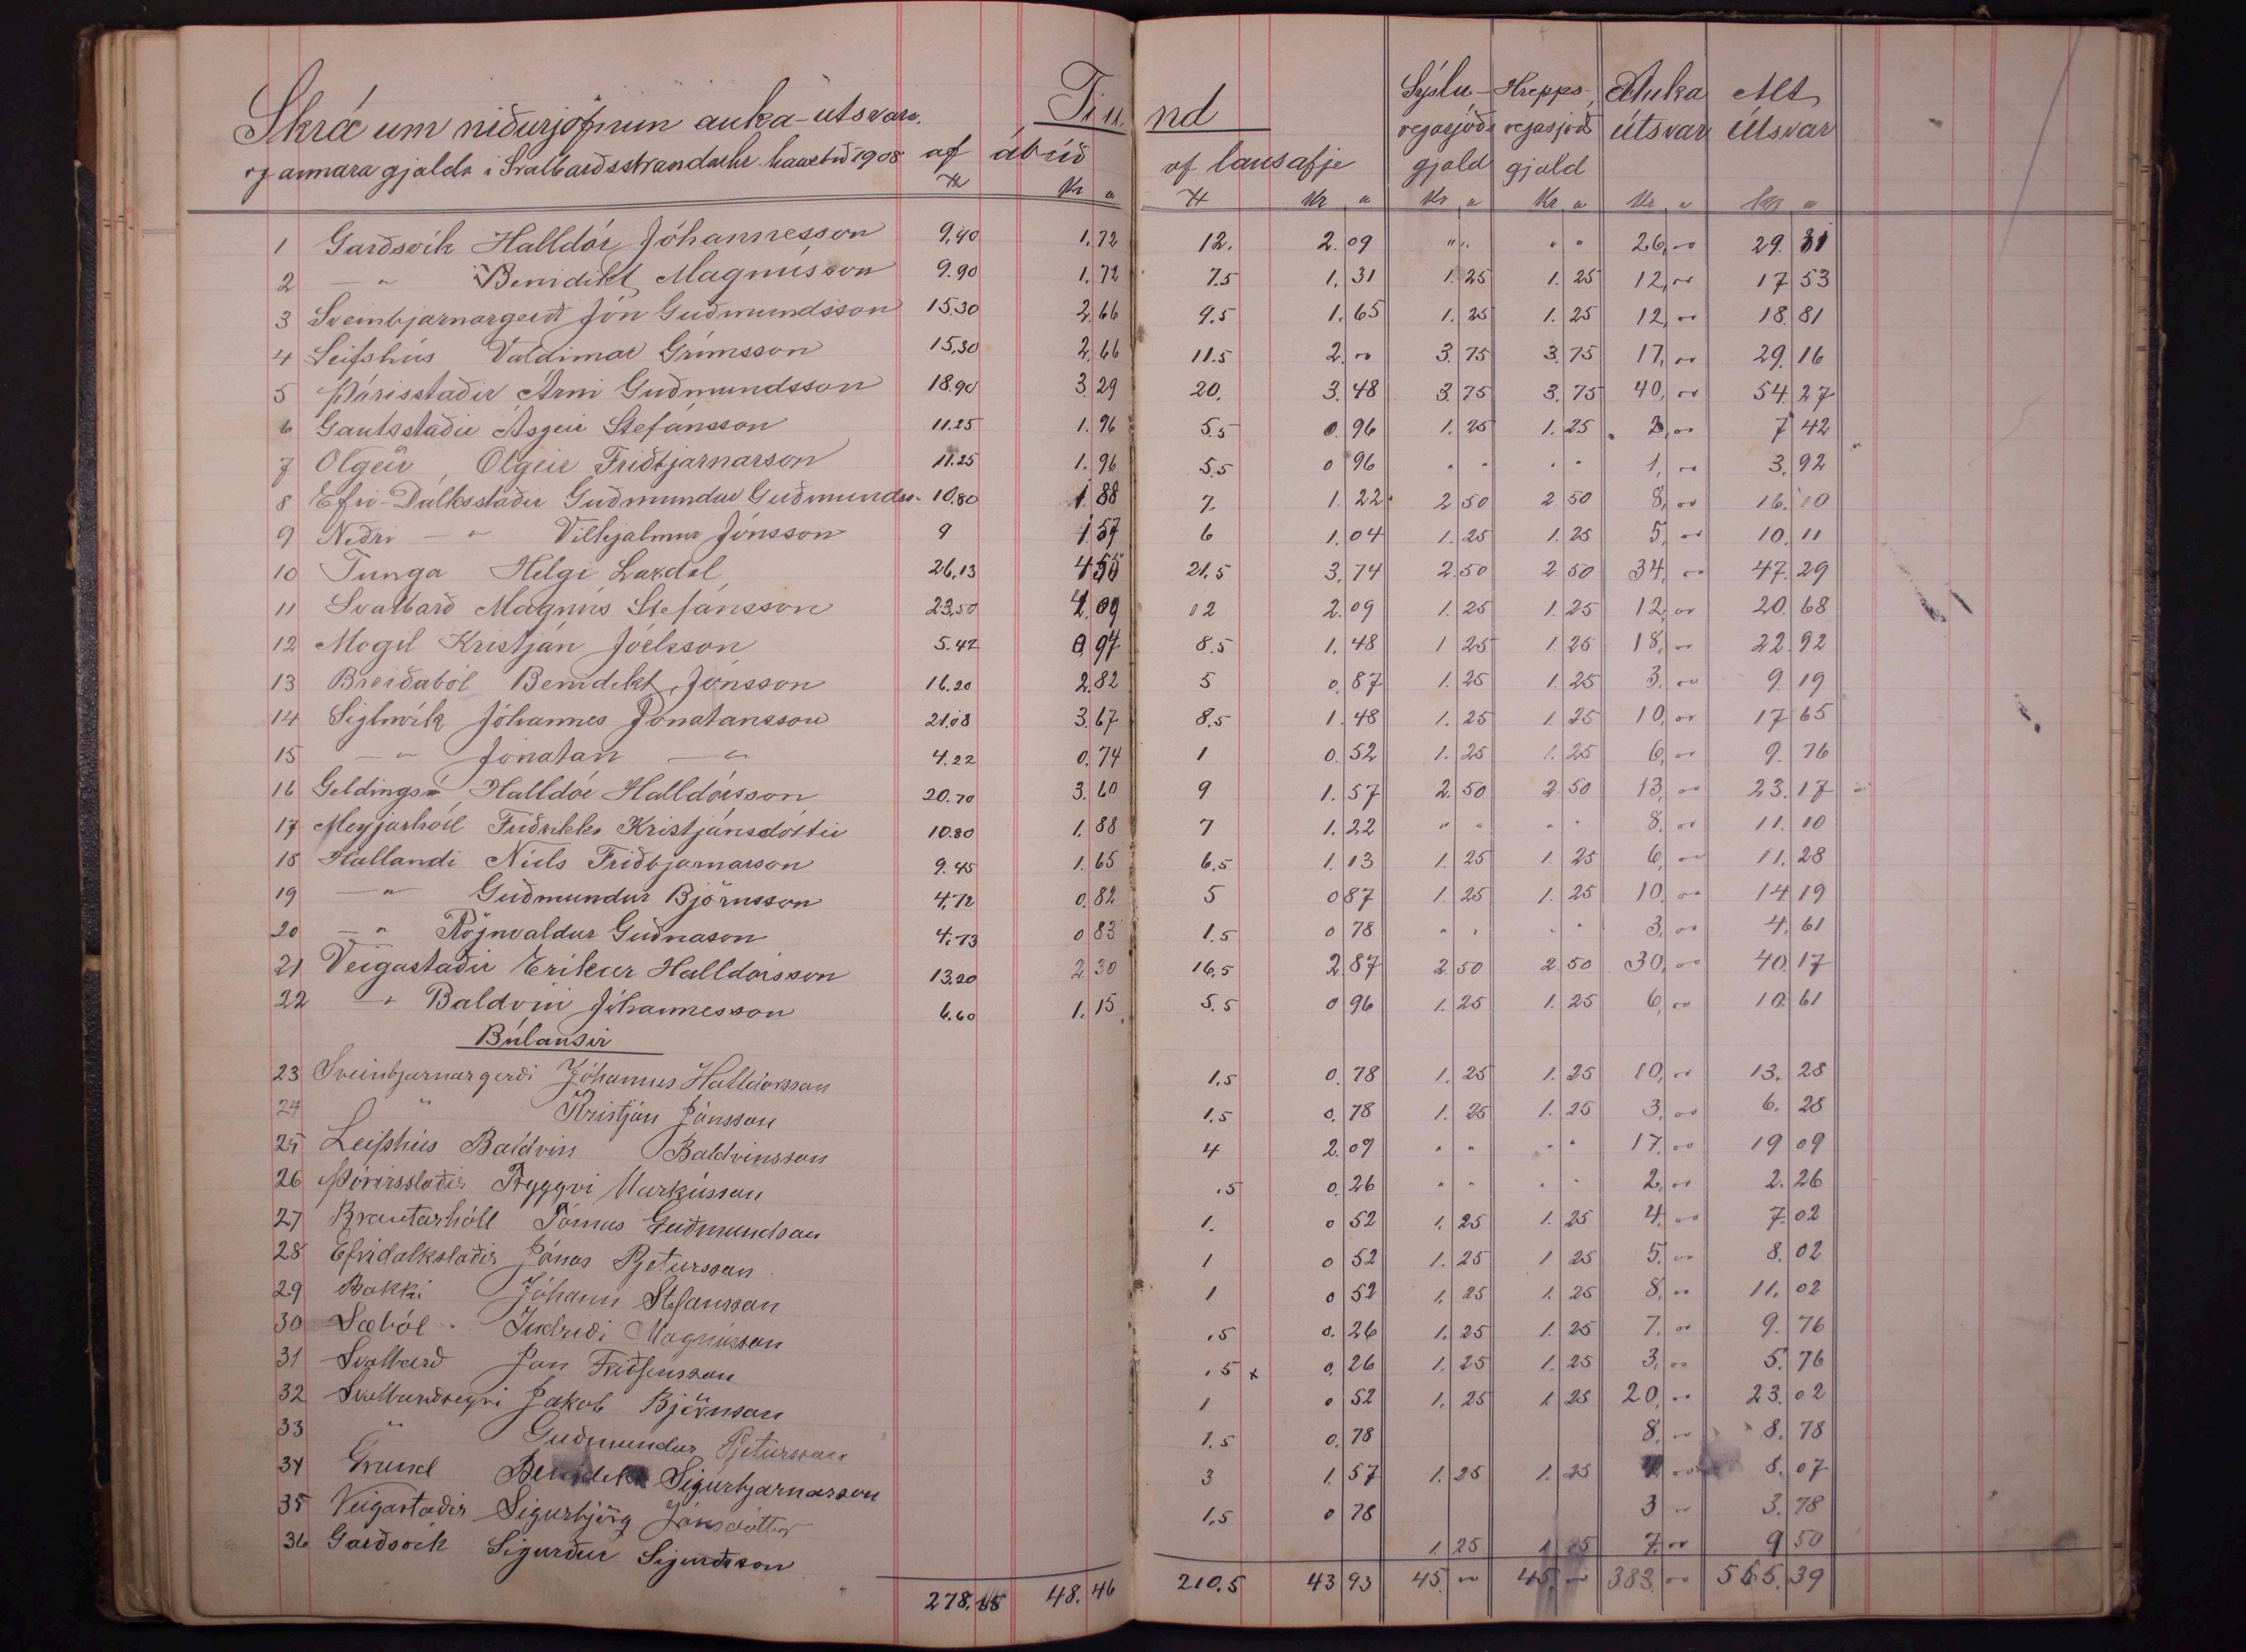 Skrá um niðurjöfnun auka-útsvara.
og annara gjalda í Svalbarðsstrandarhr. haustið 1908
Tíund
af ábúð
af lausafje
Sýslu-vegasjóðs gjald
Hrepps-vegasjóðs gjald
Auka útsvar
Alt Útsvar
Kr a Kr a Kr a Kr a Kr a Kr a
1 Garðsvík Halldór Jóhannesson 9,90 1,72 12. 2.09 " " " " 26,00 29.81
2 — " Benidikt Magnússon 9.90 1,72 7.5 1,31 1.25 1.25 12,00 17 53
3 Sveinbjarnargerði Jón Guðmundsson 15.30 2.66 9.5 1.65 1.25 1.25 12,00 18.81
4 Leifshús Valdimar Grímsson 15,30 2,66 11.5 2.00 3.75 3.75 17,00 29.16
5 Þórisstaðir Árni Guðmundsson 18.90 3 29 20. 3.48 3.75 3.75 40,00 54.27
6 Gautsstaðir Ásgeir Stefánsson 11.25 1.96 5.5 0.96 1.25 1.25 2,00 7 42
7 Olgeir, Olgeir Friðbjarnarson 11.25 1.96 5.5 0 96 " " " " 1,00 3.92
8 Efri-Dálksstaðir Guðmundur Guðmundss. 10,80 1.88 7. 1.22 2 50 2 50 8,00 16.10
9 Neðri — " Vilhjálmur Jónsson 9 1.57 6 1.04 1.25 1.25 5,00 10.11
10 Tunga Helgi Laxdal 26,13 4 55 21,5 3,74 2.50 2.50 34,00 47.29
11 Svalbarð Magnús Stefánsson 23,50 4.09 12 2.09 1.25 1.25 12,00 20.68
12 Mógil Kristján Jóelsson 5.42 0,94 8.5 1.48 1 25 1.25 18,00 22.92
13 Breiðaból Benidikt Jónsson 16.20 2.82 5 0.87 1.25 1.25 3.00 9.19
14 Sigluvík Jóhannes Jónatansson 21,08 3.67 8,5 1.48 1.25 1.25 10,00 17 65
15 — " Jónatan — " 4.22 0.74 1 0.52 1.25 1.25 6,00 9.76
16 Geldingsá Halldór Halldórsson 20.70 3.60 9 1.57 2.50 2.50 13,00 23.17
17 Meyjarhóll Friðrikka Kristjánsdóttir 10.80 1.88 7 1.22 " " " " 8,00 11.10
18 Hallandi Níels Friðbjarnarson 9.45 1.65 6,5 1.13 1.25 1.25 6,00 11.28
19 — " Guðmundur Björnsson 4,72 0,82 5 0 87 1.25 1.25 10,00 14 19
20 — " Rögnvaldur Guðnason 4,73 0 83 1.5 0 78 " " " " 3,00 4.61
21 Veigastaðir Eríkur Halldórsson 13.20 2 30 16,5 2 87 2 50 2 50 30,00 40.17
22 — " Baldvin Jóhannesson 6.60 1.15 5.5 0 96 1.25 1.25 6,00 10.61
Búlausir
23 Sveinbjarnargerði Jóhannes Halldórsson 1,5 0.78 1.25 1.25 10,00 13.28
24 " Kristján Jónsson 1.5 0.78 1.25 1.25 3,00 6.28
25 Leifshús Baldvin Baldvinsson 4 2.09 " " " " 17.00 19 09
26 Þórisstaðir Tryggvi Markússon .5 0.26 " " " " 2,00 2.26
27 Brautarhóll Tómas Guðmundsson 1. 0 52 1.25 1.25 4,00 7.02
28 Efridálkstaðir Jónas Pjetursson 1 0 52 1.25 1 25 5.00 8.02
29 Bakki Jóhann Stefansson 1 0 52 1.25 1.25 8,00 11.02
30 Sæból Indriði Magnússon .5 0.26 1.25 1.25 7.00 9.76
31 Svalbarð Jón Friðfinnsson .5 x 0,26 1.25 1.25 3,00 5.76
32 Svalbarðseyri Jakob Björnsson 1 0 52 1.25 1 25 20,00 23.02
33 " Guðmundur Pjetursson 1.5 0.78 8,00 8.78
34 Grund Benidikt Sigurbjarnarson 3 1.57 1.25 1.25 4,00 8.07
35 Veigastaðir Sigurbjörg Jónsdóttir 1,5 0 78 3 00 3.78
36 Garðsvík Sigurður Sigurðsson 1.25 1.25 7.00 9 50
278.65 48.46 210.5 43 93 45.00 45.00 383.00 565.39